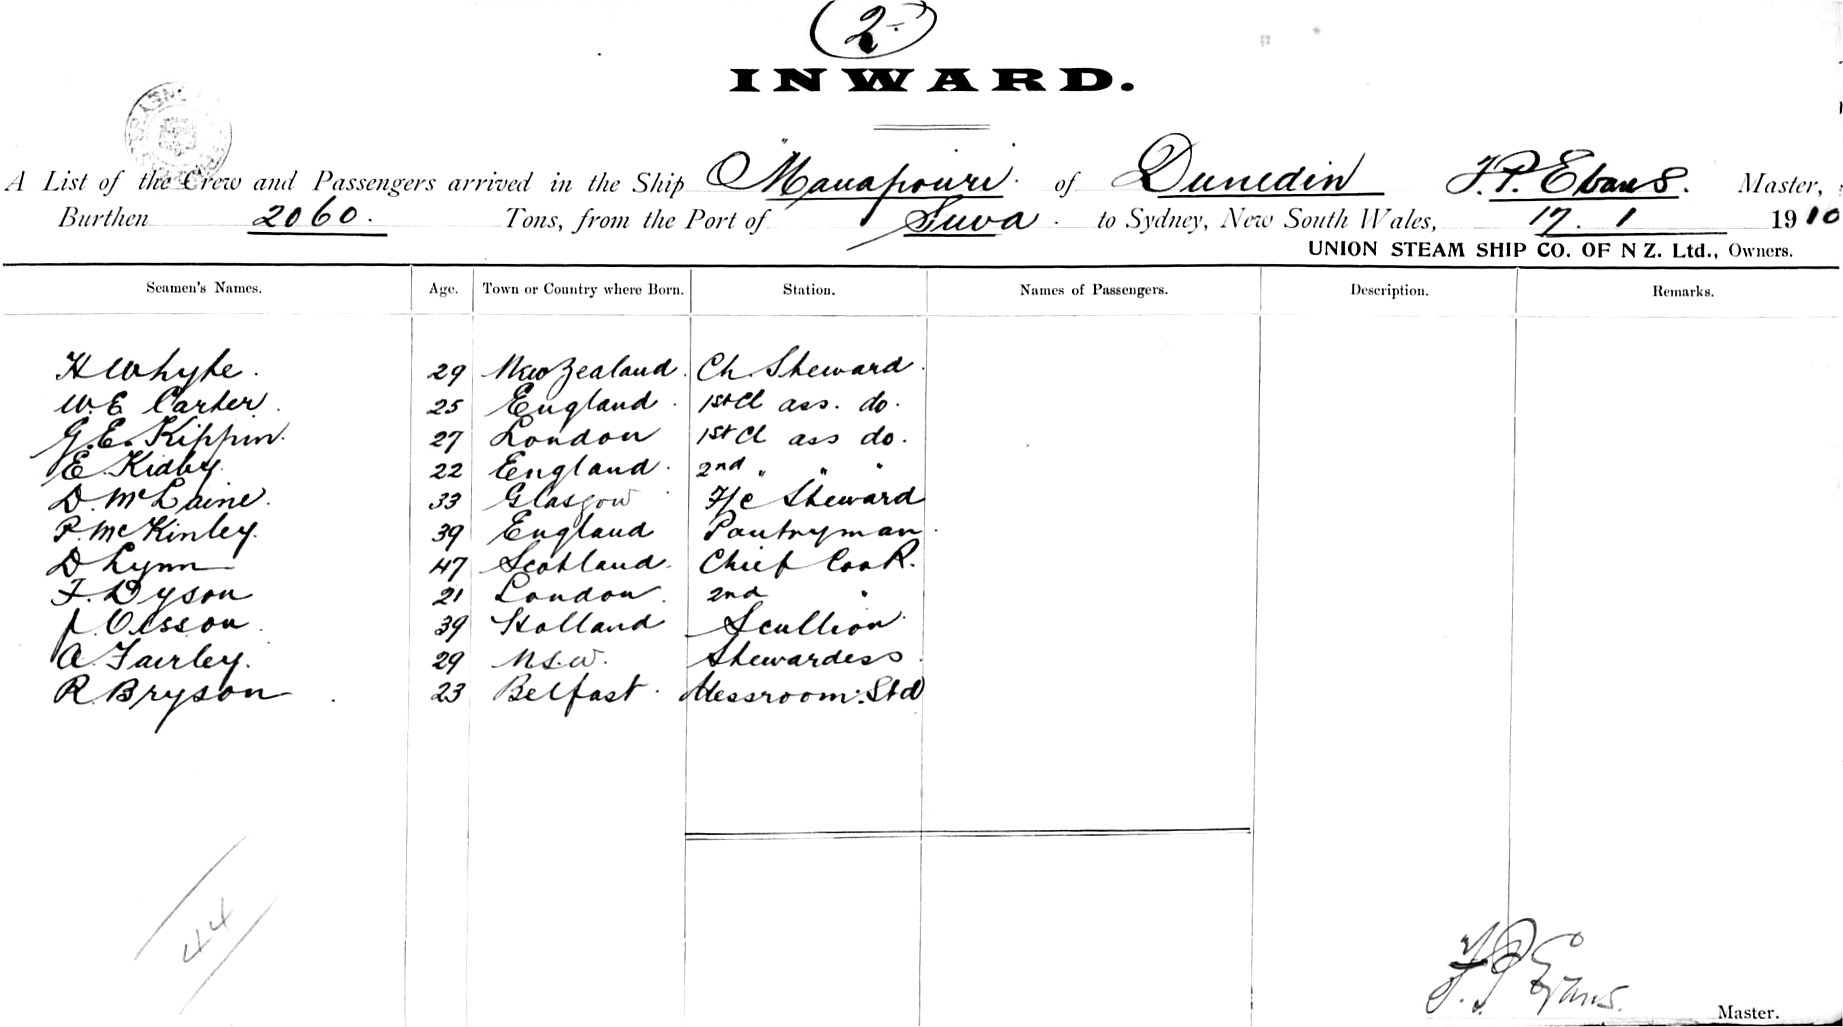 2
INWARD.
A List of the Crew and Passengers arrived in the Ship "Manapouri of Dunedin F.P. Evans. Master,
Burthen 2060. Tons, from the Port of Suva to Sydney, New South Wales, 17. 1 1910
UNION STEAM SHIP CO. OF N Z. Ltd., Owners.
Seamen's Names. Age. Town or Country where Born. Station. Names of Passengers. Description. Remarks.
H Whyte. 29 New Zealand. Ch. Steward.
W.E Carter. 25 England. 1st Cl ass. do.
G.E. Kippin. 27 London 1st Cl ass do.
E. Kidby. 22 England. 2nd " " "
D. McLaine. 33 Glasgow F/c Steward
P. McKinley. 39 England Pantryman.
D Lynn 47 Scotland. Chief Cook.
F. Dyson 21 London. 2nd "
J. Olsson. 39 Holland Scullion.
A. Fairley. 29 N.S.W. Stewardess.
R. Bryson 23 Belfast. Messroom. Std
44
F. P Evans.
Master.